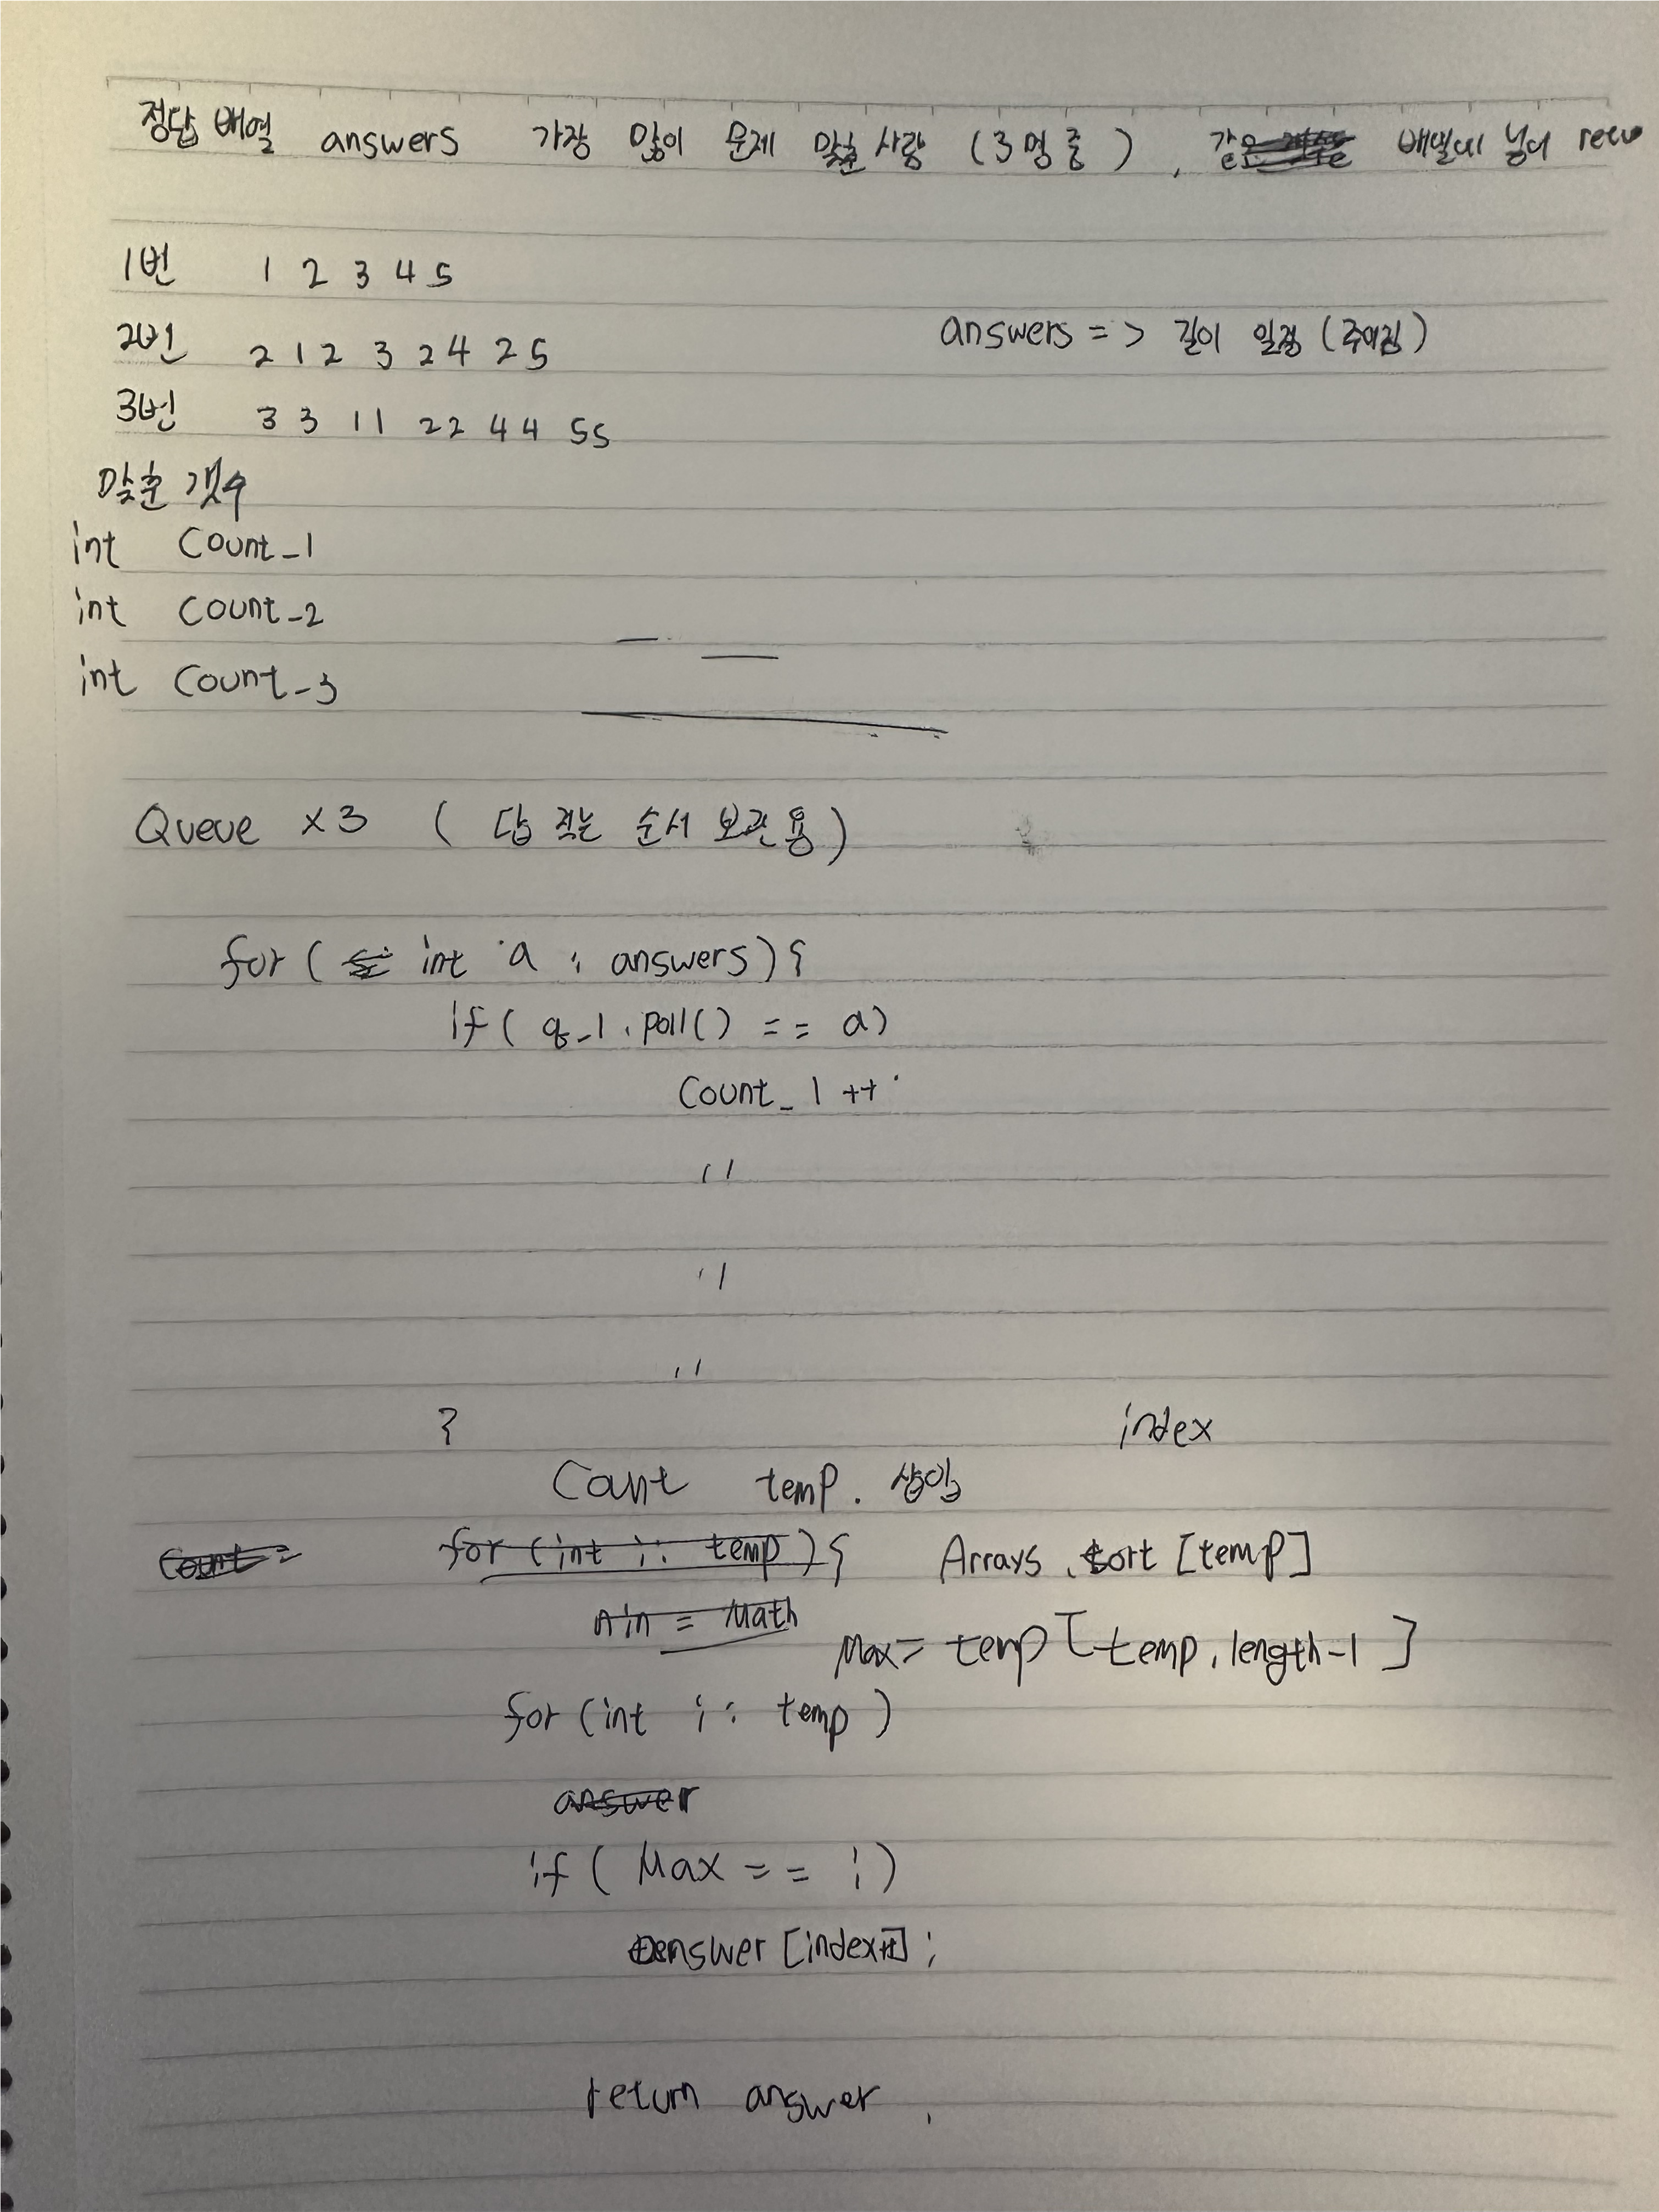 정답 배열 answers 가장 많이 문제 맞춘 사람 (3명 중), 같으 배열에 넣어
1번 1 2 3 4 5
2번 2 1 2 3 2 4 2 5
answers => 길이 일정 (주어짐)
3번 3 3 1 1 2 2 4 4 5 5
맞춘 갯수
int Count_1
int Count_2
int Count_3
Queue x3 ( 답 적는 순서 보관용 )
for ( int a : answers) {
if ( q_1.poll() == a)
Count_1 ++
〃
〃
〃
}
index
Count temp. 삽입
Count =
for (int i : temp) { Arrays.sort [temp]
min = Math
Max = temp [temp.length-1]
for (int i : temp )
answer
if ( Max == i )
answer [index++] ;
return answer.